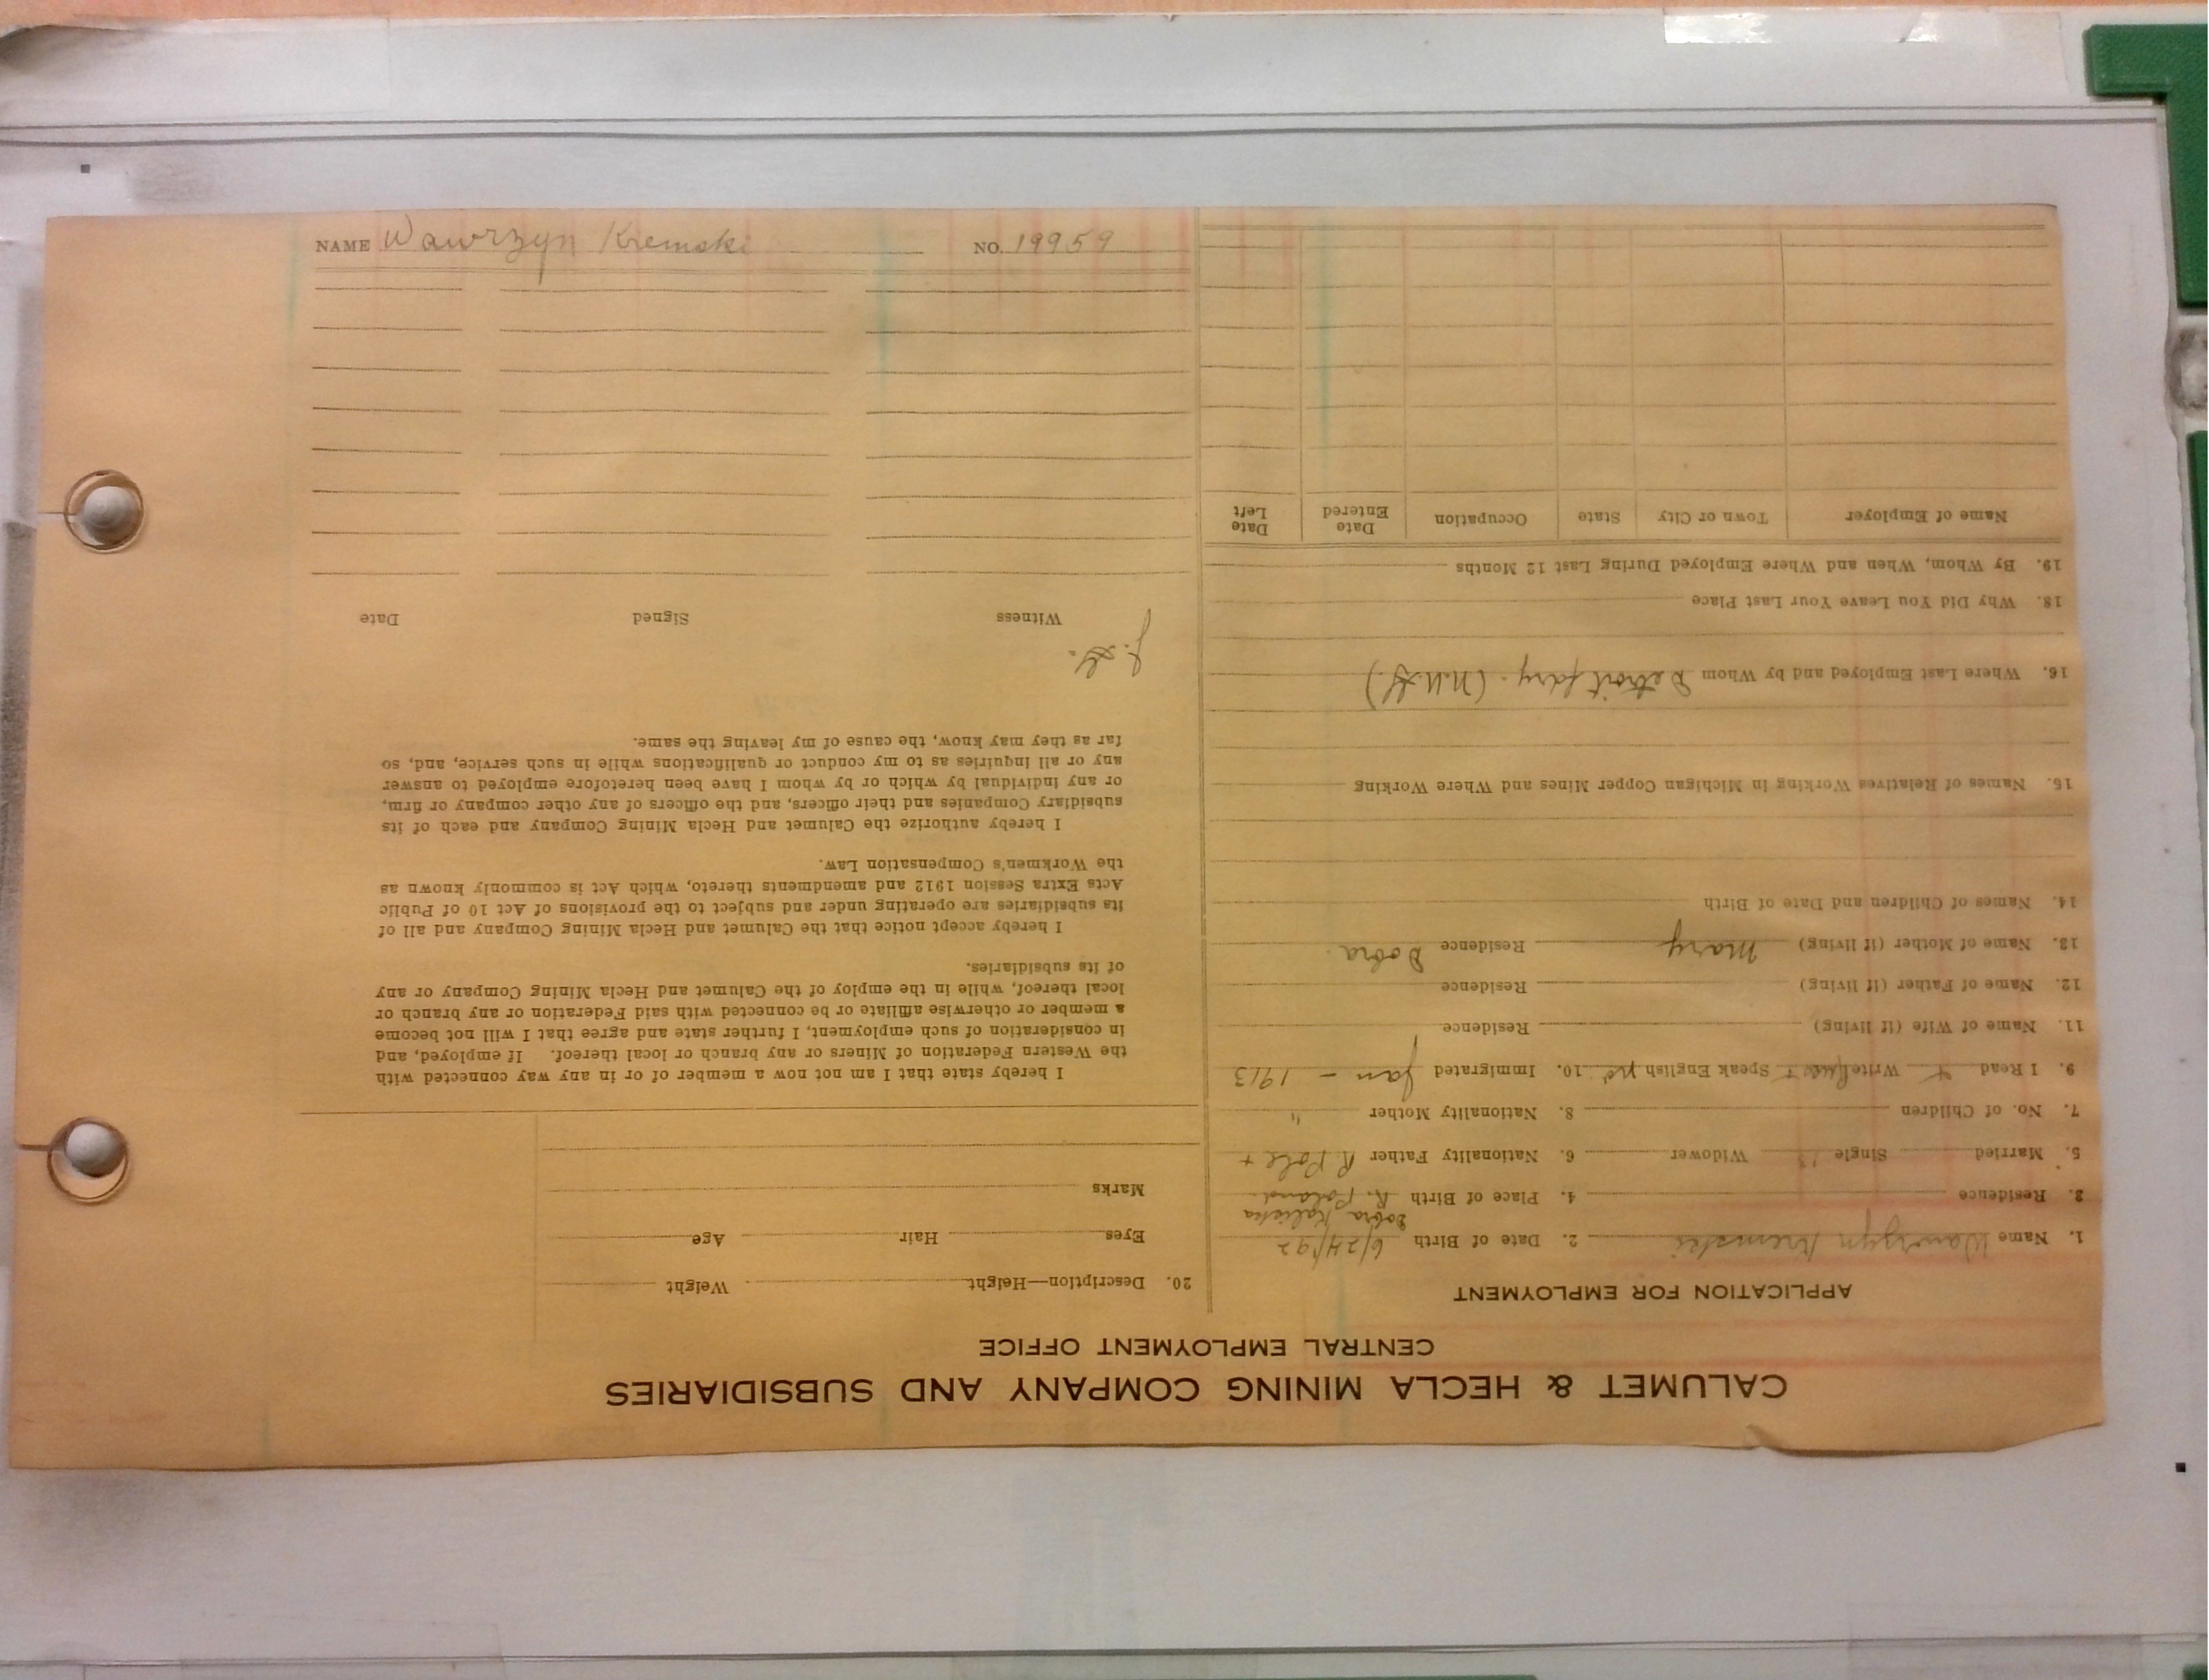 CALUMET & HECLA MINING COMPANY AND SUBSIDIARIES
CENTRAL EMPLOYMENT OFFICE
APPLICATION FOR EMPLOYMENT
1. Name Wawrzyn Kremski 2. Date of Birth 6/24/92
Dobra Kaliska
3. Residence 4. Place of Birth R. Poland.
5. Married Single Widower 6. Nationality Father R. Pole +
7. No. of Children 8. Nationality Mother "
9. I Read Write Speak English no 10. Immigrated Jan - 1913
11. Name of Wife (if living) Residence
12. Name of Father (if living) Residence
13. Name of Mother (if living) Mary Residence Dobra.
14. Names of Children and Date of Birth
15. Names of Relatives Working in Michigan Copper Mines and Where Working
16. Where Last Employed and by Whom Detroit
18. Why Did You Leave Your Last Place
19. By Whom, When and Where Employed During Last 12 Months
Name of Employer Town or City State Occupation Date Entered Date Left
20. Description—Height Weight
Eyes Hair Age
Marks
I hereby state that I am not now a member of or in any way connected with
the Western Federation of Miners or any branch or local thereof. If employed, and
in consideration of such employment, I further state and agree that I will not become
a member or otherwise affiliate or be connected with said Federation or any branch or
local thereof, while in the employ of the Calumet and Hecla Mining Company or any
of its subsidiaries.
I hereby accept notice that the Calumet and Hecla Mining Company and all of
its subsidiaries are operating under and subject to the provisions of Act 10 of Public
Acts Extra Session 1912 and amendments thereto, which Act is commonly known as
the Workmen's Compensation Law.
I hereby authorize the Calumet and Hecla Mining Company and each of its
subsidiary Companies and their officers, and the officers of any other company or firm,
or any individual by which or by whom I have been heretofore employed to answer
any or all inquiries as to my conduct or qualifications while in such service, and, so
far as they may know, the cause of my leaving the same.
Witness Signed Date
NAME Wawrzyn Kremski NO. 19959